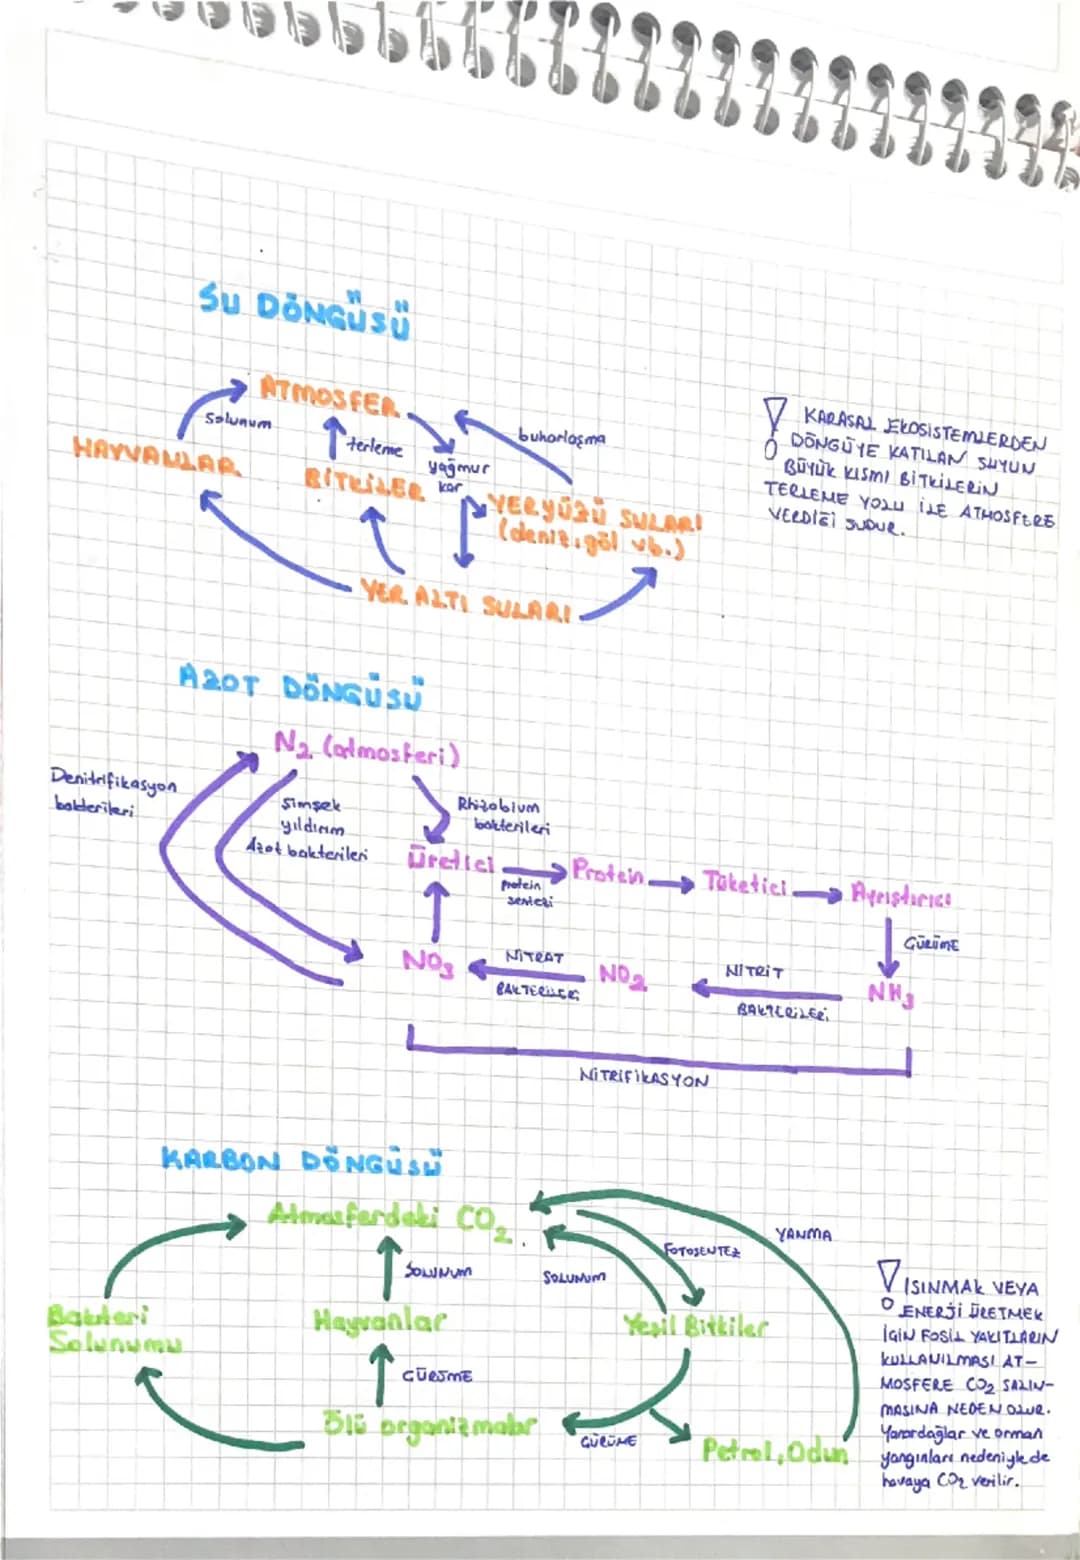 SU DÖNGÜSÜ
ATMOSFER
Solunum
terleme
yağmur
kar
buharlaşma
HAYVANLAR
BİTKİLER
YERYÜZÜ SULARI
(deniz, göl vb.)
YER ALTI SULARI
KARASAL EKOSİSTEMLERDEN
DÖNGÜYE KATILAN SUYUN
BÜYÜK KISMI BİTKİLERİN
TERLEME YOLU İLE ATMOSFERE
VERDİĞİ SUDUR.
AZOT DÖNGÜSÜ
N2 (atmosferi)
Denitrifikasyon
bakterileri
Şimşek
yıldırım
Azot bakterileri
Rhizobium
bakterileri
Üretici
protein
sentezi
Protein
Tüketici
Ayrıştırıcı
ÇÜRÜME
NO3
NİTRAT
BAKTERİLERİ
NO2
NİTRİT
BAKTERİLERİ
NH3
NİTRİFİKASYON
KARBON DÖNGÜSÜ
Atmosferdeki CO2
SOLUNUM
SOLUNUM
FOTOSENTEZ
YANMA
Bakteri
Solunumu
Hayvanlar
Yeşil Bitkiler
Ölü organizmalar
ÇÜRÜME
Petrol, Odun
ISINMAK VEYA
ENERJİ ÜRETMEK
İÇİN FOSİL YAKITLARIN
KULLANILMASI AT-
MOSFERE CO2 SALIN-
MASINA NEDEN OLUR.
Yanardağlar ve orman
yangınları nedeniyle de
havaya CO2 verilir.